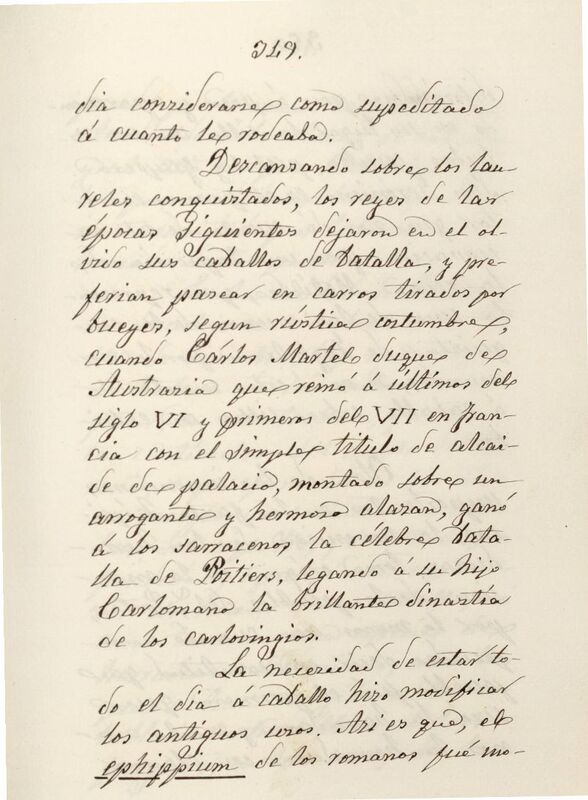 349.
dia considerarse como supeditado
á cuanto le rodeaba.
Descansando sobre los lau-
reles conquistados, los reyes de las
épocas siguientes dejaron en el ol-
vido sus caballos de batalla, y pre-
ferian pasear en carros tirados por
bueyes, segun rústica costumbre,
cuando Cárlos Martel duque de
Austrasia que reinó á últimos del
siglo VI y primeros del VII en Fran-
cia con el simple titulo de alcai-
de de palacio, montado sobre un
arrogante y hermoso alazan, ganó
á los sarracenos la célebre bata-
lla de Poitiers, legando á su hijo
Carlomano la brillante dinastía
de los carlovingios.
La necesidad de estar to-
do el dia á caballo hizo modificar
los antíguos usos. Asi es que, el
ephippium de los romanos fué mo-